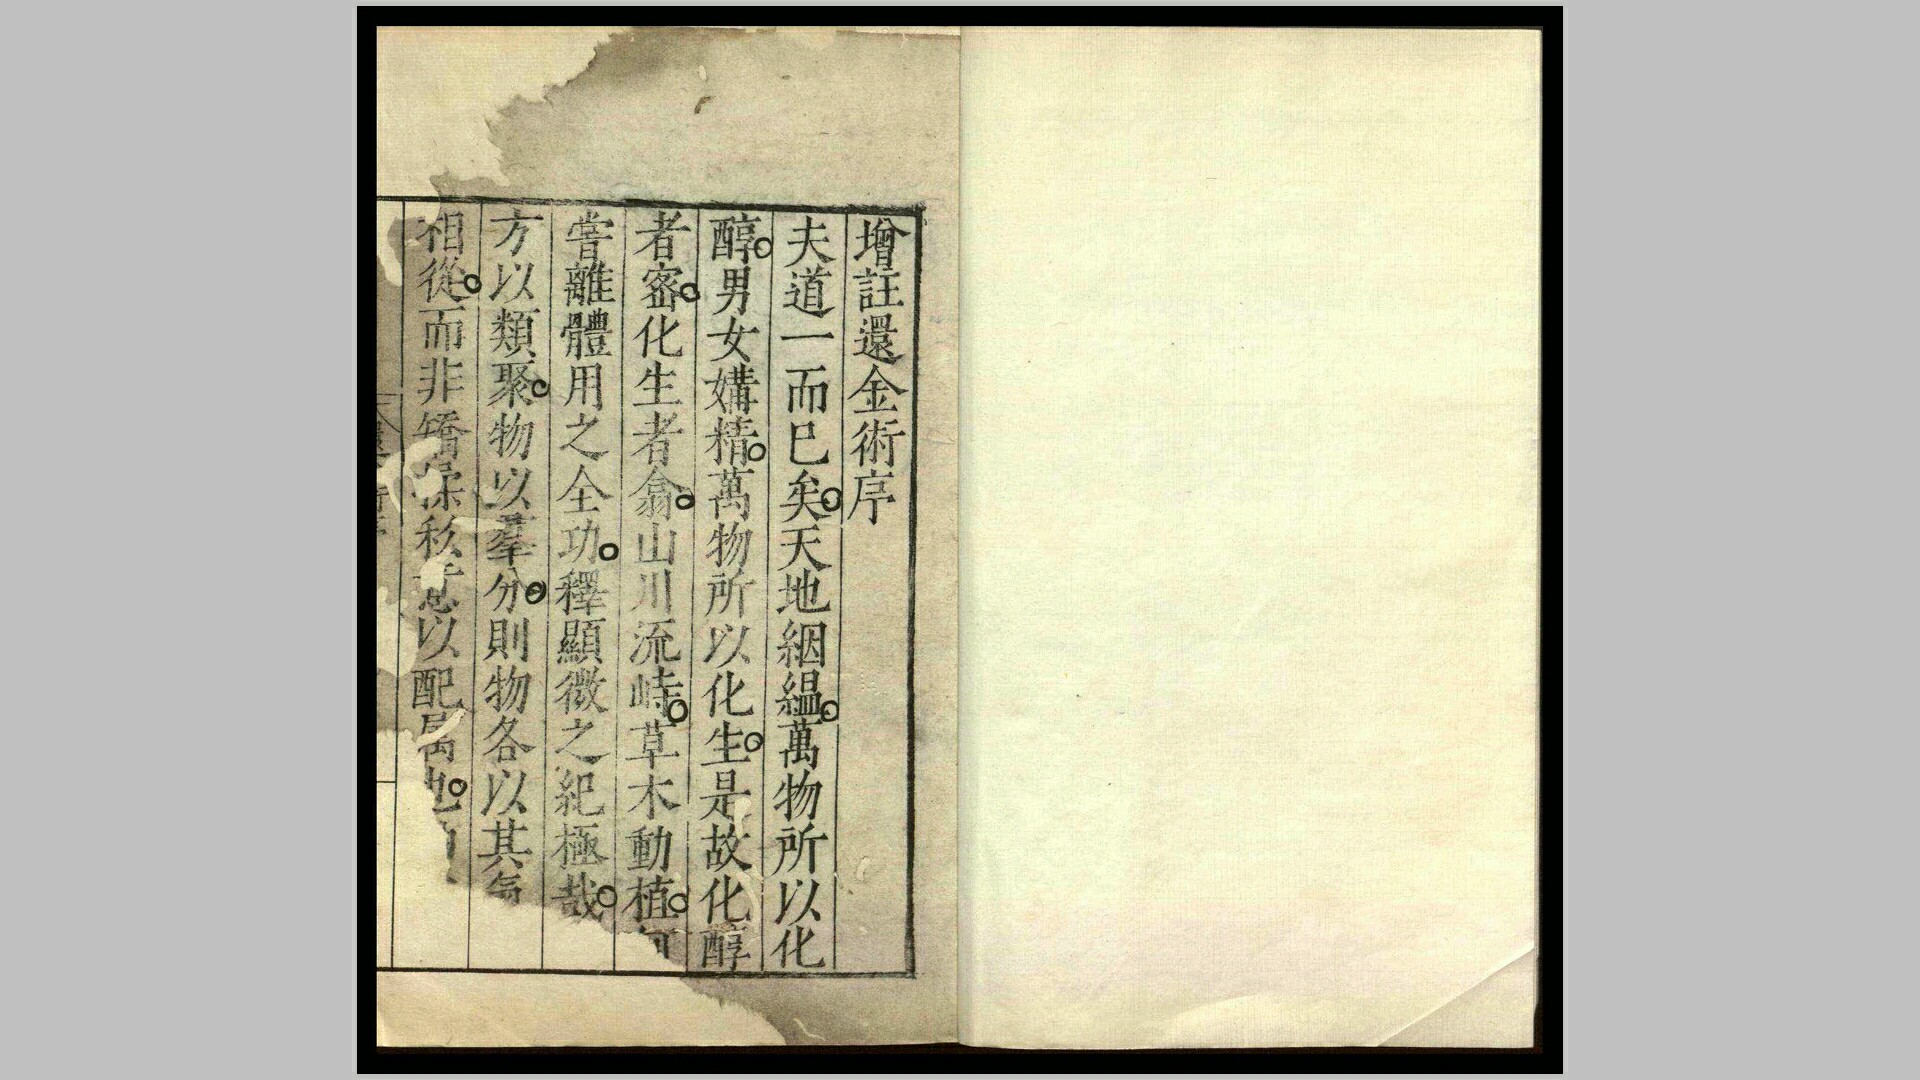 增註還金術序
夫道一而已矣天地絪縕萬物所以化
醇男女媾精萬物所以化生是故化醇
者密化生者翕山川流峙草木動植何
嘗離體用之全功釋顯微之紀極哉
方以類聚物以羣分則物各以其氣
相從而非矯揉私意以配屬也